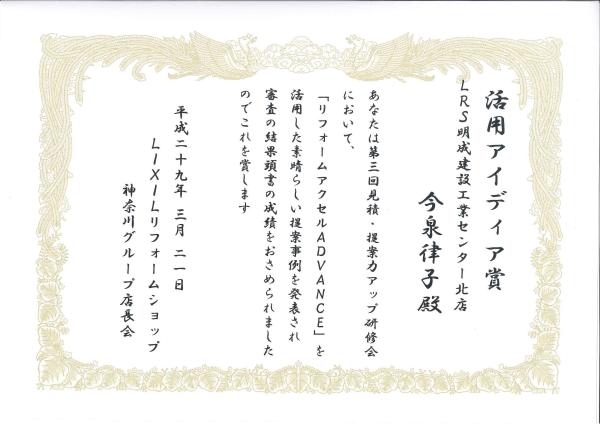 活用アイディア賞
LRS明成建設工業センター北店
今泉律子殿
あなたは第三回見積・提案力アップ研修会
において、
「リフォームアクセルADVANCE」を
活用した素晴らしい提案事例を発表され
審査の結果頭書の成績をおさめられました
のでこれを賞します
平成二十九年 三月 二一日
LIXILリフォームショップ
神奈川グループ店長会